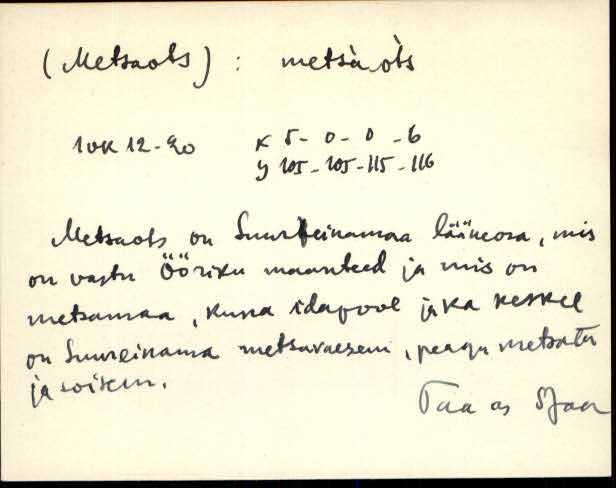 (Metsaots) : metsà òts
10K 12-20 x 5 - 0 - 0 - 6
y 105 - 105 - 115 - 116
Metsaots on Suureinamaa lääneosa, mis
on vastu Ööriku maanteed ja mis on
metsamaa, kuna idapool ja ka keskel
on Suureinama metsavaesem, peagu metsata
ja soisem.